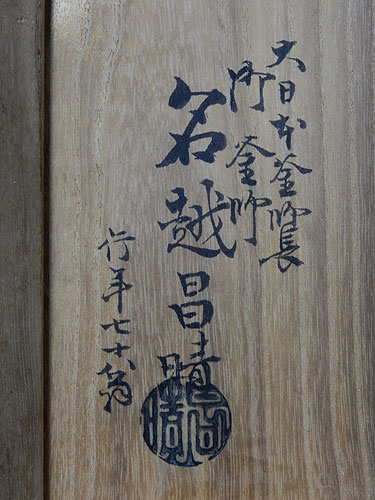 大日本釜師長
御釜師
名越昌晴
行年七十翁
昌晴